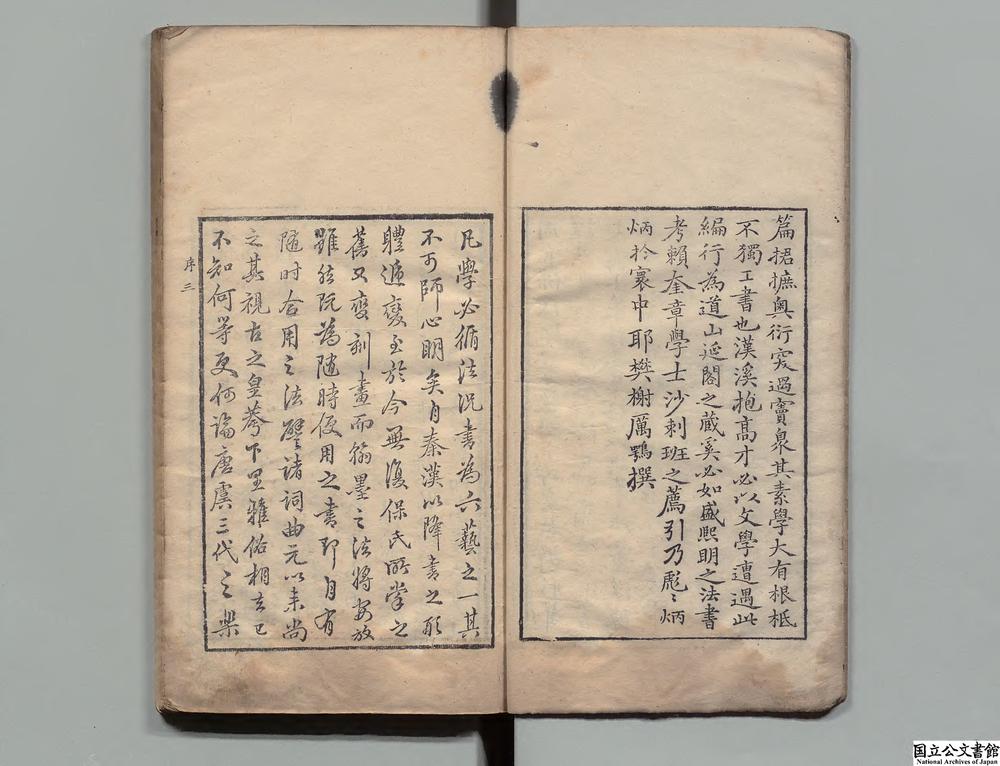 篇捃摭奥衍突過竇臮其素學大有根柢
不獨工書也漢溪抱高才必以文學遭遇此
編行為道山延閣之藏奚必如盛熙明之法書
考賴奎章學士沙剌班之薦引乃彪〻炳
炳於寰中耶樊榭厲鶚撰
凡學必循法況書為六藝之一其
不可師心明矣自秦漢以降書之形
體遞變至於今無復保氏所掌之
舊又變刻畫而翰墨之法將安放
雖然既為隨時便用之書即自有
隨時合用之法譬諸詞曲元以来尚
之其視古之皇荂下里雅俗相去已
不知何等更何論唐虞三代之樂
序三
国立公文書館
National Archives of Japan